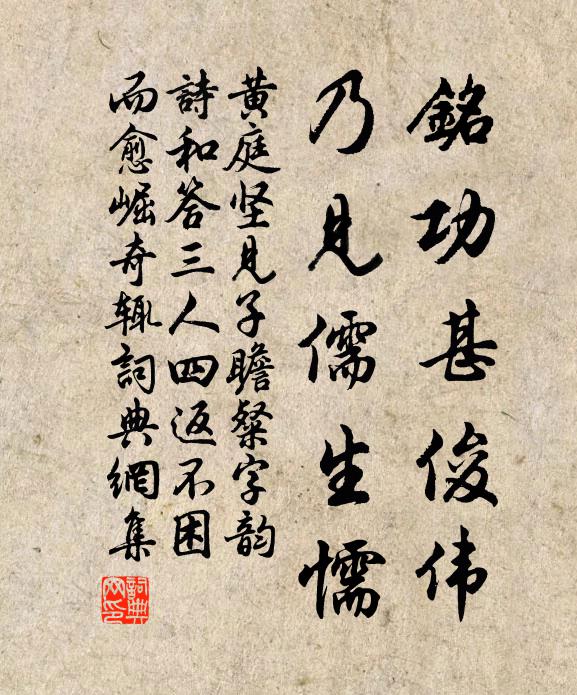 銘功甚俊伟
乃見儒生懦
黄庭坚見子瞻粲字韵
詩和答三人四返不困
而愈崛奇輒詞典網集
詞典